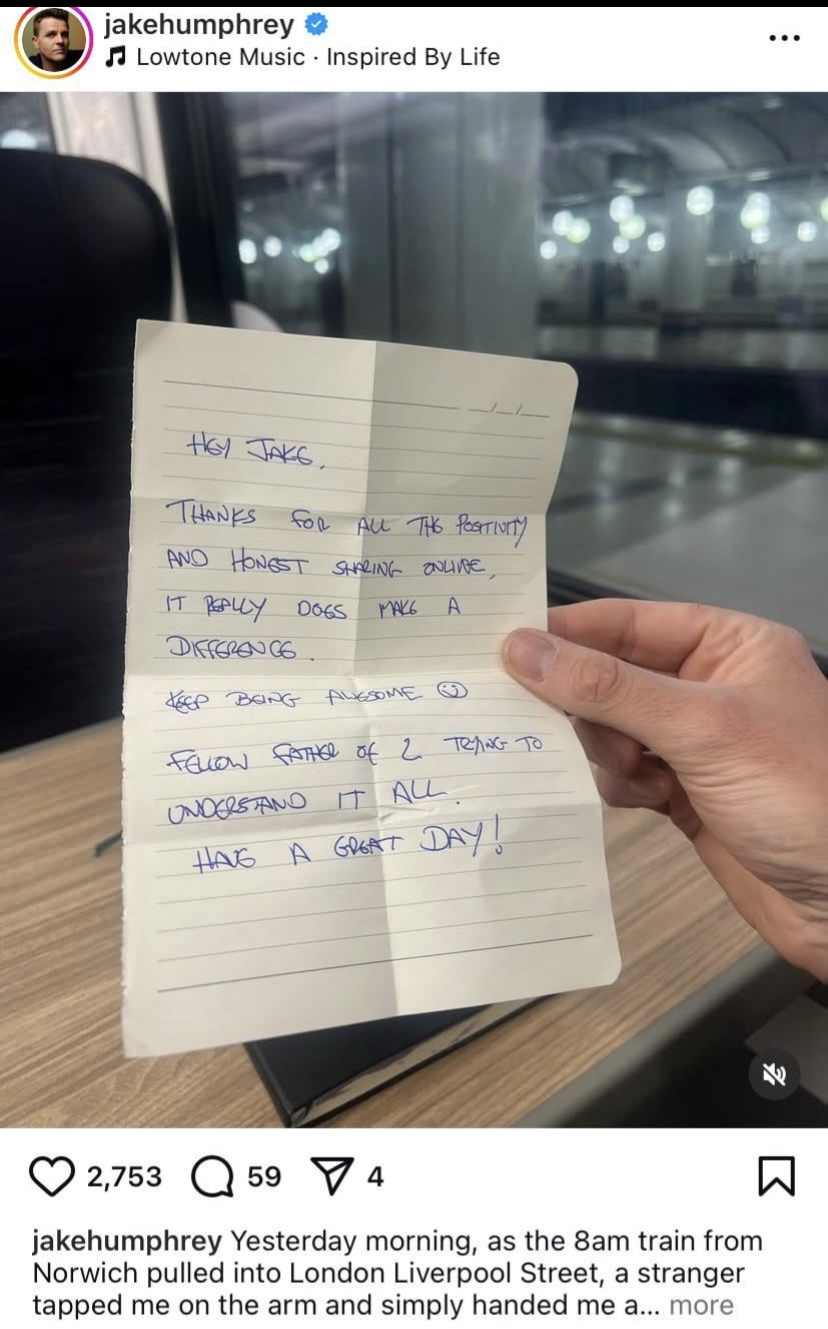 jakehumphrey
Lowtone Music · Inspired By Life
HEY JAKE,
THANKS FOR ALL THE POSITIVITY
AND HONEST SHARING ONLINE,
IT REALLY DOES MAKE A
DIFFERENCE.
KEEP BEING AWESOME
FELLOW FATHER OF 2 TRYING TO
UNDERSTAND IT ALL.
HAVE A GREAT DAY!
2,753 59 4
jakehumphrey Yesterday morning, as the 8am train from
Norwich pulled into London Liverpool Street, a stranger
tapped me on the arm and simply handed me a... more